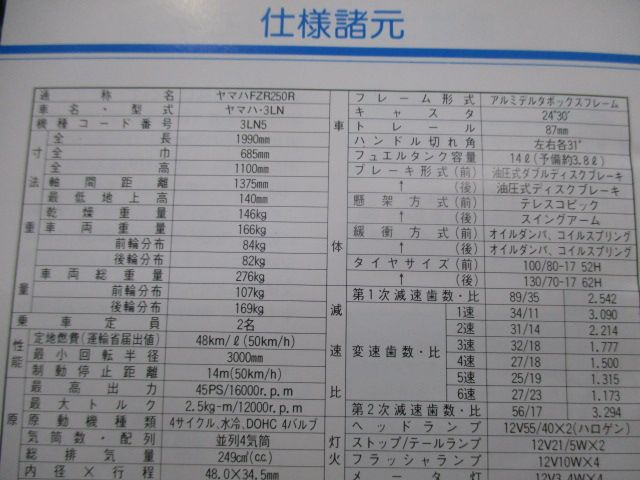 仕様諸元
通称名 ヤマハFZR250R
車名・型式 ヤマハ・3LN
機種コード番号 3LN5
寸法
全長 1990mm
全巾 685mm
全高 1100mm
軸間距離 1375mm
最低地上高 140mm
重量
乾燥重量 146kg
車両重量 166kg
前輪分布 84kg
後輪分布 82kg
車両総重量 276kg
前輪分布 107kg
後輪分布 169kg
乗車定員 2名
性能
定地燃費(運輸省届出値) 48km/ℓ(50km/h)
最小回転半径 3000mm
制動停止距離 14m(50km/h)
最高出力 45PS/16000r.p.m
最大トルク 2.5kg-m/12000r.p.m
原
原動機種類 4サイクル、水冷、DOHC 4バルブ
気筒数・配列 並列4気筒
総排気量 249㎤(c.c.)
内径×行程 48.0×34.5mm
車体
フレーム形式 アルミデルタボックスフレーム
キャスタ 24°30′
トレール 87mm
ハンドル切れ角 左右各31°
フュエルタンク容量 14ℓ(予備約3.8ℓ)
ブレーキ形式(前) 油圧式ダブルディスクブレーキ
↑(後) 油圧式ディスクブレーキ
懸架方式(前) テレスコピック
↑(後) スイングアーム
緩衝方式(前) オイルダンパ、コイルスプリング
↑(後) オイルダンパ、コイルスプリング
タイヤサイズ(前) 100/80-17 52H
↑(後) 130/70-17 62H
減速比
第1次減速歯数・比 89/35 2.542
変速歯数・比
1速 34/11 3.090
2速 31/14 2.214
3速 32/18 1.777
4速 27/18 1.500
5速 25/19 1.315
6速 27/23 1.173
第2次減速歯数・比 56/17 3.294
灯火
ヘッドランプ 12V55/40×2(ハロゲン)
ストップ/テールランプ 12V21/5W×2
フラッシャランプ 12V10W×4
メータ灯 12V3.4W×4